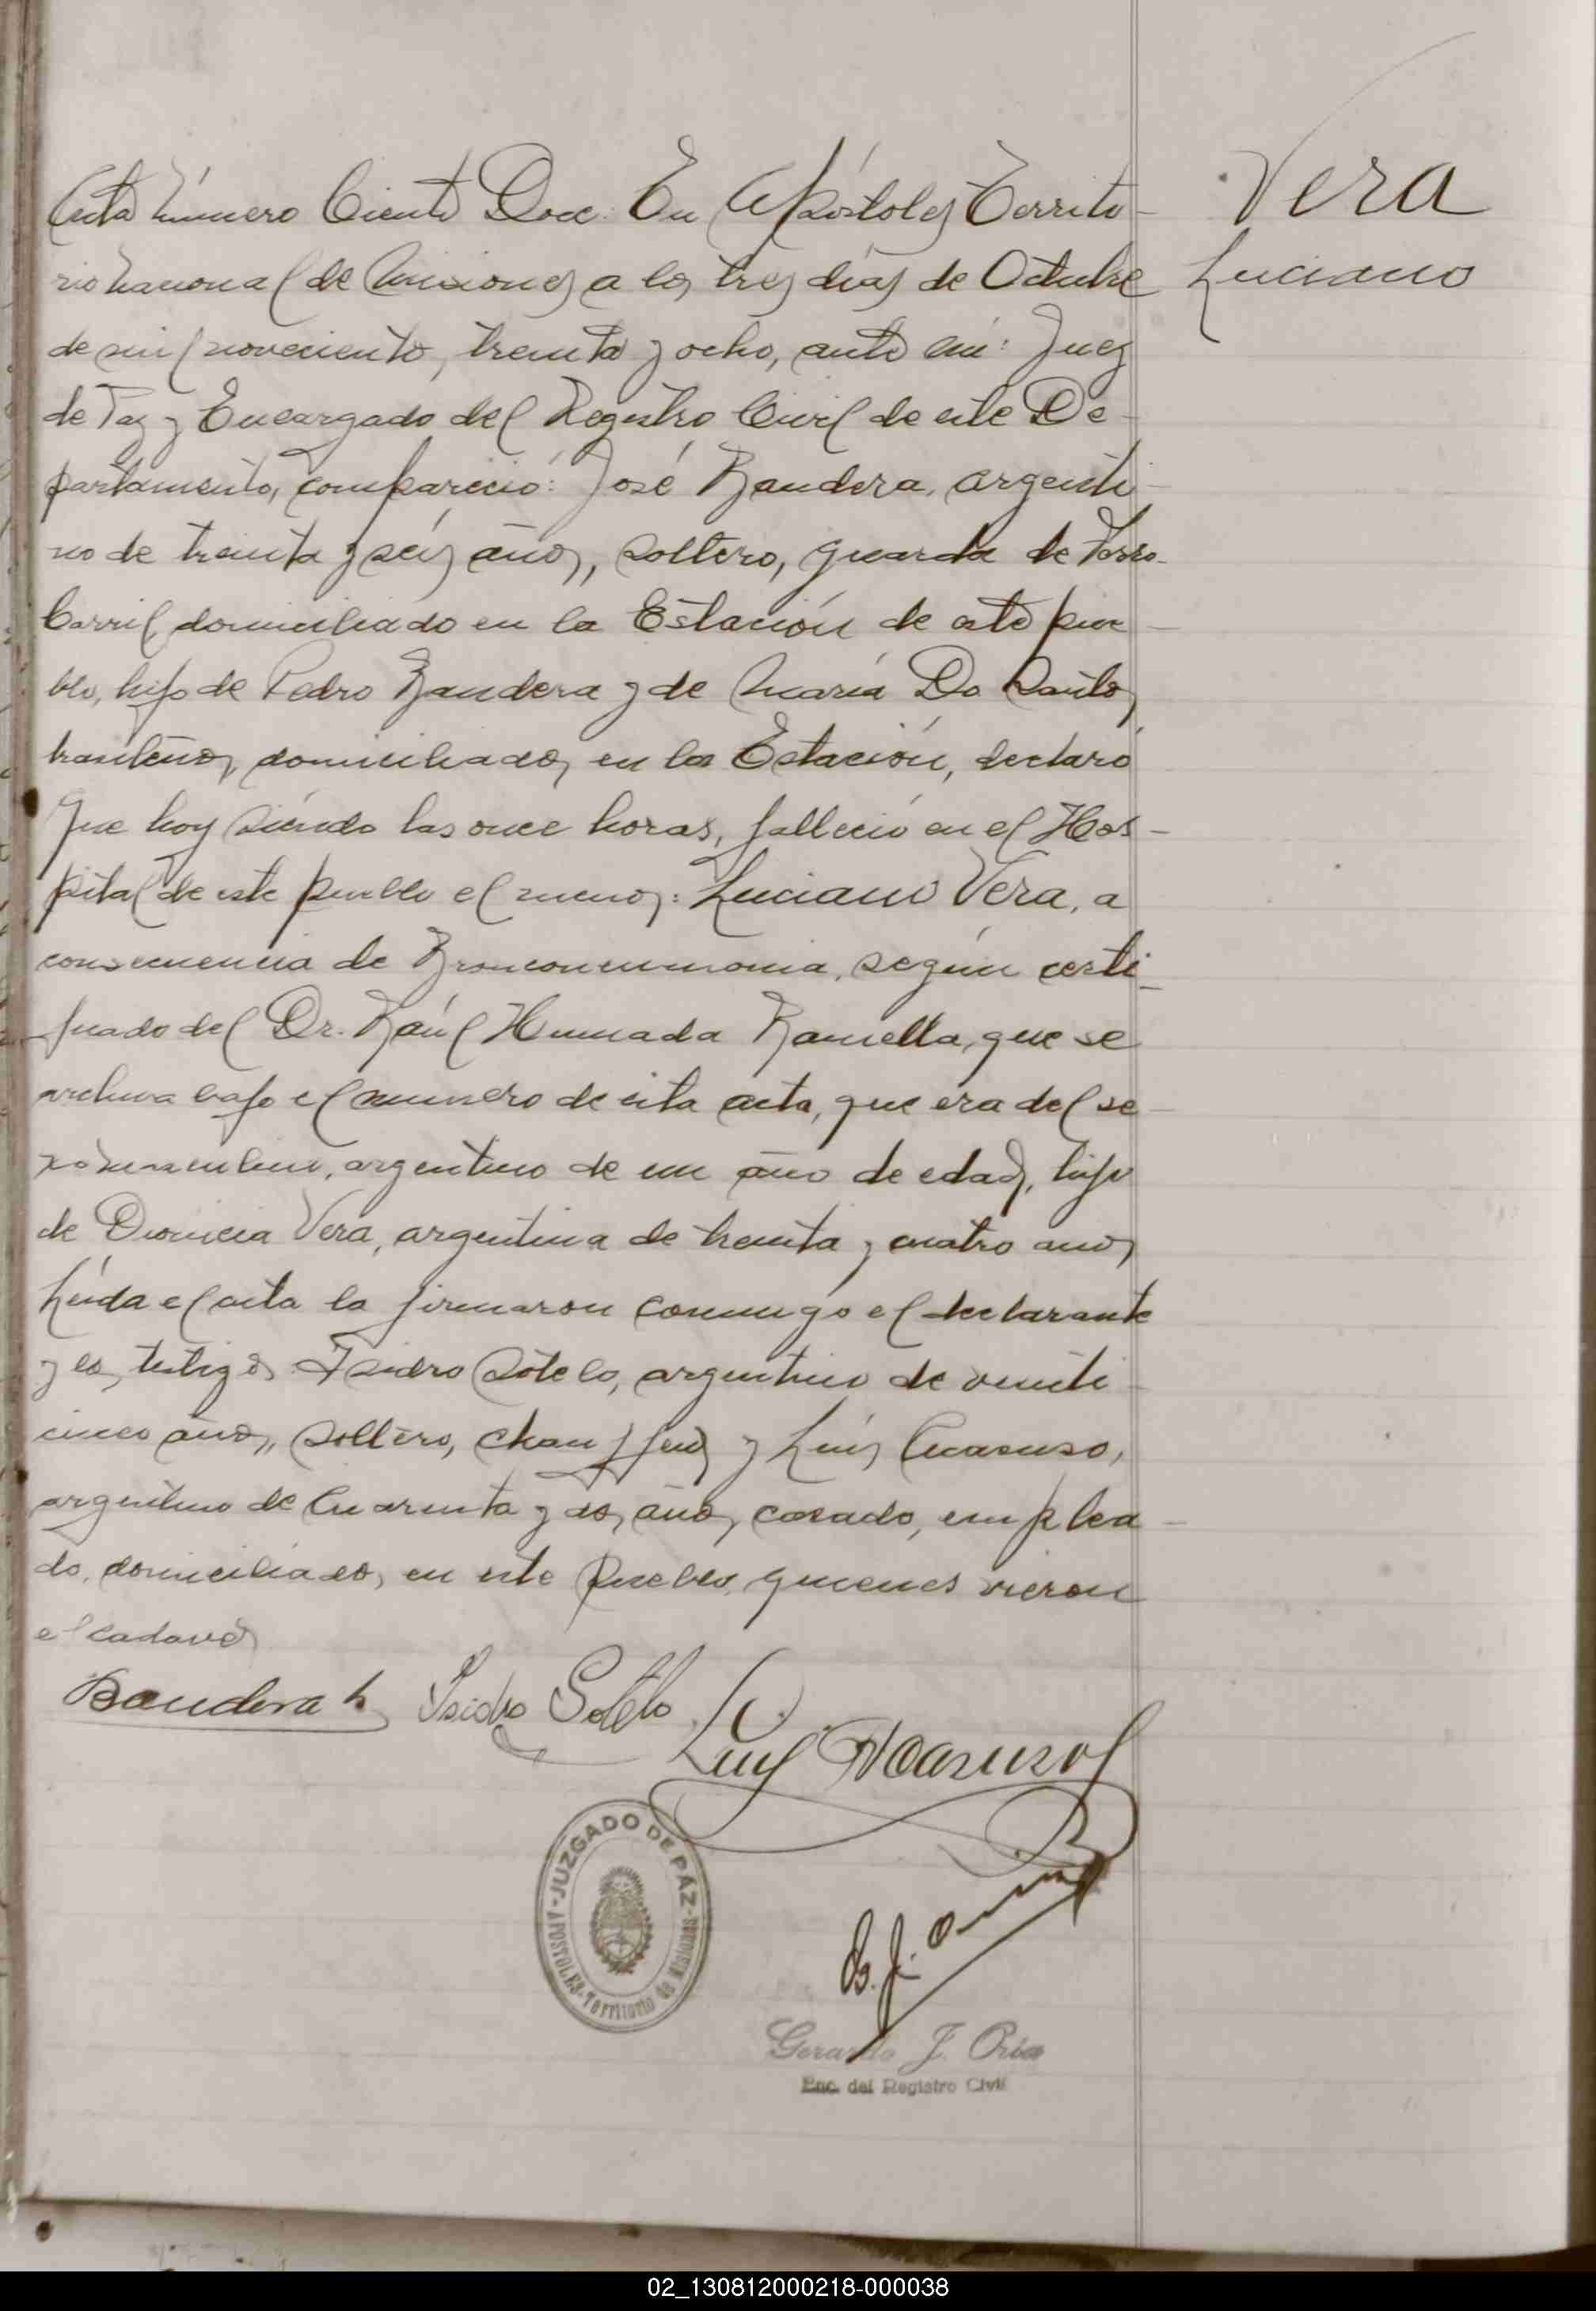 Acta número Ciento Doce. En Apóstoles Territo-
rio Nacional de Misiones a los tres días de Octubre
de mil novecientos treinta y ocho, ante mi: Juez
de Paz y Encargado del Registro Civil de este De-
partamento, compareció: José Bandera, argenti-
no de treinta y seis años, soltero, guarda de Ferro-
Carril, domiciliado en la Estación de este pue-
blo, hijo de Pedro Bandera y de María Do Santos,
brasileños, domiciliados en la Estación, declaró
Que hoy siendo las once horas, falleció en el Hos-
pital de este pueblo el menor: Luciano Vera, a
consecuencia de Bronconeumonia, según certi-
ficado del Dr. Raúl Humada Ramella, que se
archiva bajo el número de esta acta, que era del se-
xo masculino, argentino de un año de edad, hijo
de Dionicia Vera, argentina de treinta y cuatro años
Leída el acta la firmaron conmigo el declarante
y los testigos Isidro Sotelo, argentino de veinti
cinco años, soltero, chauffeur y Luis
argentino de Cuarenta y dos años, casado, emplea-
do, domiciliados en este Pueblo, quienes vieron
el cadaver
Bandera h Isidro Sotelo
Luis
Vera
Luciano
JUZGADO DE PÁZ
APOSTOLES-Territorio de Misiones
Gerardo J. Oria
Enc. del Registro Civil
02_130812000218-000038